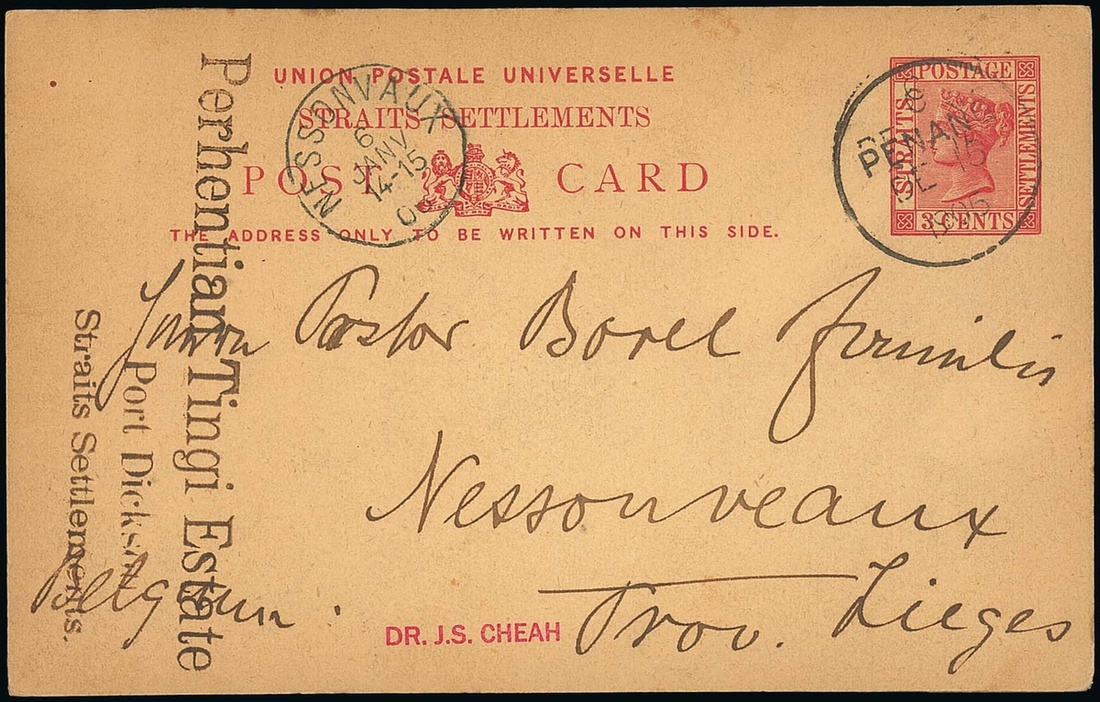 UNION POSTALE UNIVERSELLE
STRAITS SETTLEMENTS
POST CARD
THE ADDRESS ONLY TO BE WRITTEN ON THIS SIDE.
POSTAGE
STRAITS
SETTLEMENTS
3 CENTS
PENANG
DE 15
NESSONVAUX
6
JANV
14-15
Perhentian Tingi Estate
Port Dickson
Straits Settlements.
Pastor Borel
Nessonveaux
Prov. Lieges
Belgium.
DR. J.S. CHEAH